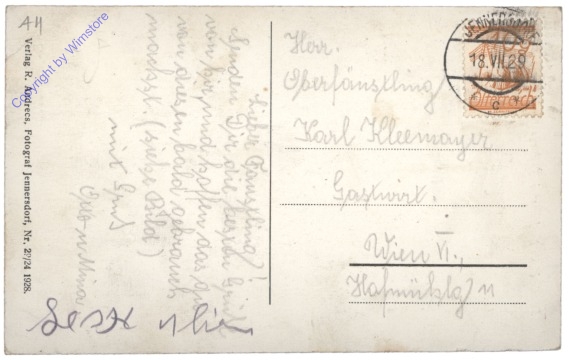 A4
Copyright by Wimstore
Verlag R. Andrecs, Fotograf Jennersdorf, Nr. 27/24 1928.
Lieber Fänstling!
Senden Dir die besten Grüße
von hier und hoffen das du
von diesen bald gebrauch
machst. (siehe Bild)
mit Gruß
JENNERSDORF
18.VII.29
Österreich
Herr.
Oberfänstling
Karl Kleemayer
Gastwirt.
Wien VI.,
Hofmühlg 11